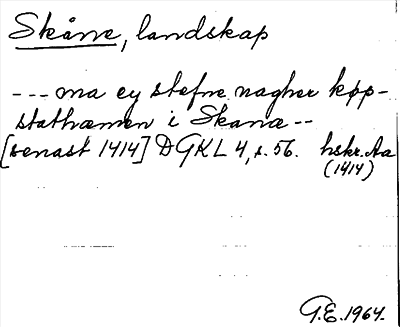 Skåne, landskap
--- ma ey stefne nagher køp-
stathæmen i Skana --
[senast 1414] DGKL 4, s. 56. hskr. Aa
(1414)
G.E. 1964.